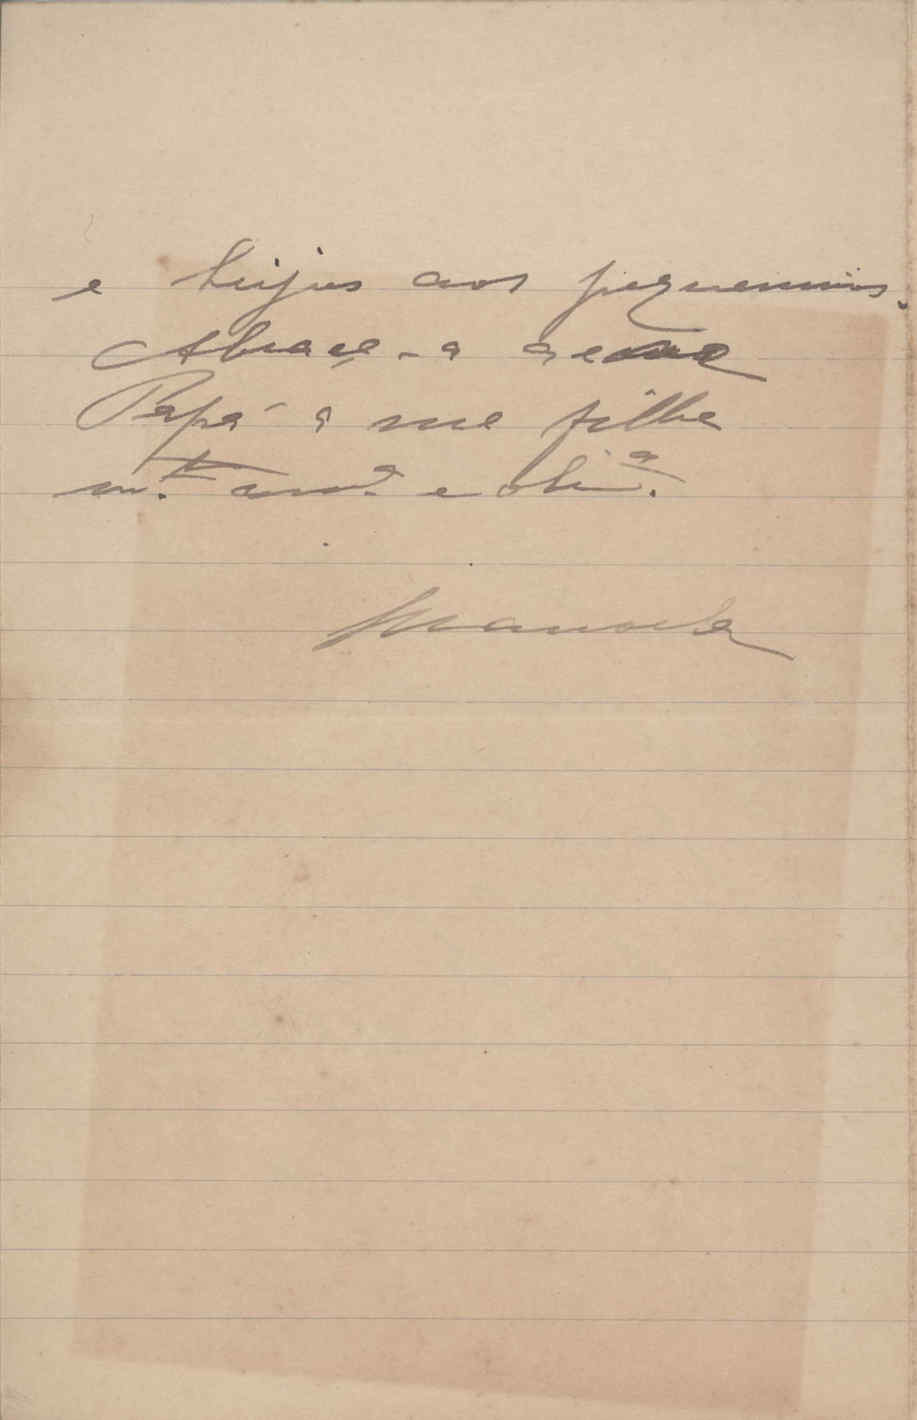 e beijos aos pequeninos.
Abraça-a a e ao
Papá a sua filha
m.to am.a e obr.a
Manoela